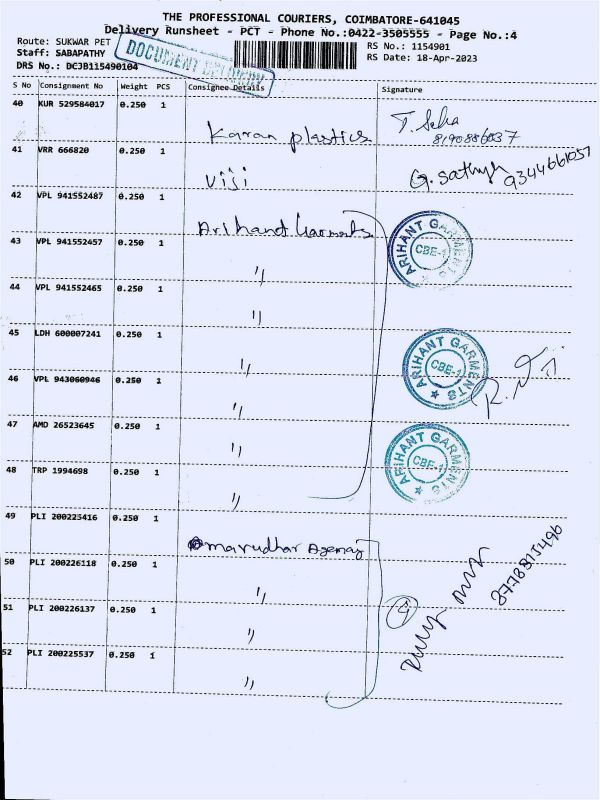 THE PROFESSIONAL COURIERS, COIMBATORE-641045
Delivery Runsheet - PCT - Phone No.:0422-3505555 - Page No.:4
Route: SUKWAR PET
Staff: SABAPATHY
DRS No.: DCJB115490104
DOCUMENT DELIVERY
RS No.: 1154901
RS Date: 18-Apr-2023
S No Consignment No Weight PCS Consignee Details Signature
40 KUR 529584017 0.250 1 Karan plastics
41 VRR 666820 0.250 1 Viji G. Sathya 9344661057
42 VPL 941552487 0.250 1 Arihant Garments
43 VPL 941552457 0.250 1 "
44 VPL 941552465 0.250 1 "
45 LDH 600007241 0.250 1 "
46 VPL 943060946 0.250 1 "
47 AMD 26523645 0.250 1 "
48 TRP 1994698 0.250 1 "
ARIHANT GARMENTS CBE-1
ARIHANT GARMENTS CBE-1
ARIHANT GARMENTS CBE-1
49 PLI 200225416 0.250 1 marudhar Agency
50 PLI 200226118 0.250 1 "
51 PLI 200226137 0.250 1 "
52 PLI 200225537 0.250 1 "
4